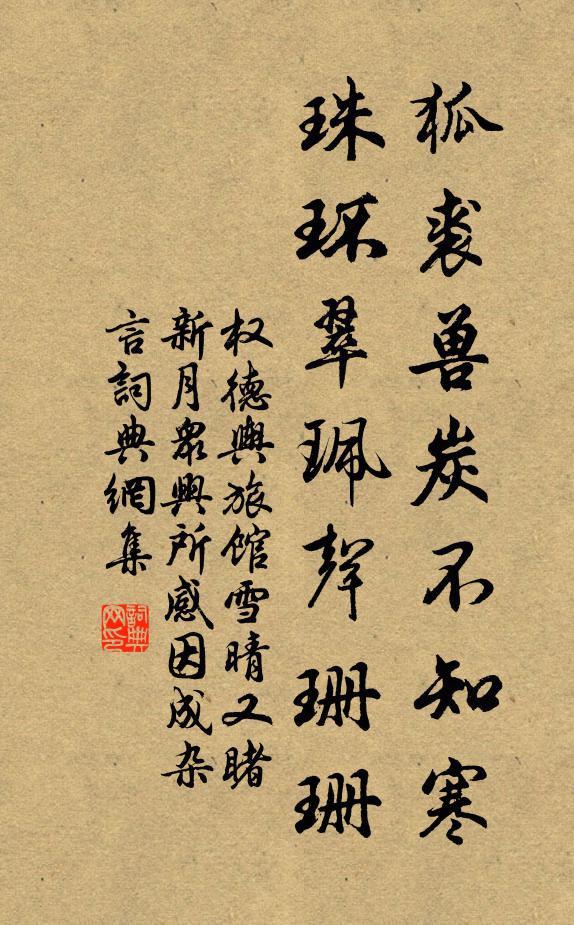 狐裘兽炭不知寒
珠环翠珮聲珊珊
权德輿旅馆雪晴又睹
新月眾興所感因成杂
言詞典網集
詞典网印